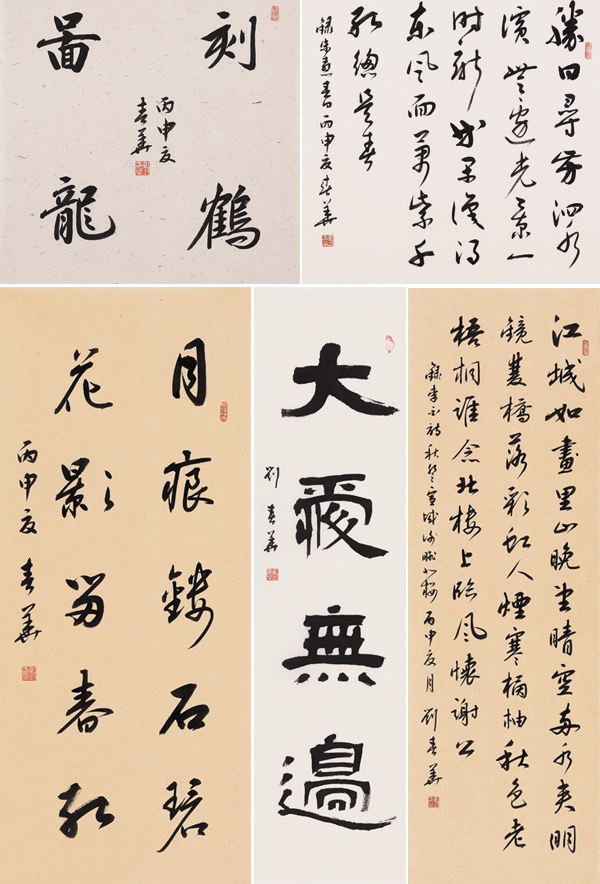 刻鶴
啚龍
丙申夏
春華
勝日尋芳泗水
濱無邊光景一
時新等閒識得
東風面萬紫千
紅總是春
録朱熹春日丙申夏春華
月痕鏤石碧
花影留春紅
丙申夏春華
大愛無邊
劉春華
江城如畫里山晚望晴空兩水夾明
鏡雙橋落彩虹人煙寒橘柚秋色老
梧桐誰念北樓上臨風懷謝公
録李白詩秋登宣城謝朓北樓丙申夏月劉春華